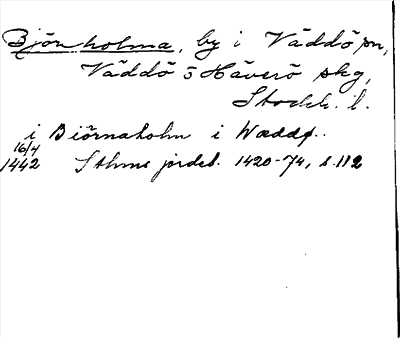 Björnholma, by i Väddö sn,
Väddö o Häverö skg,
Stockh. l.
i Biörnaholm i Wæddø.
16/4
1442 Sthms jordeb. 1420-74, s. 112